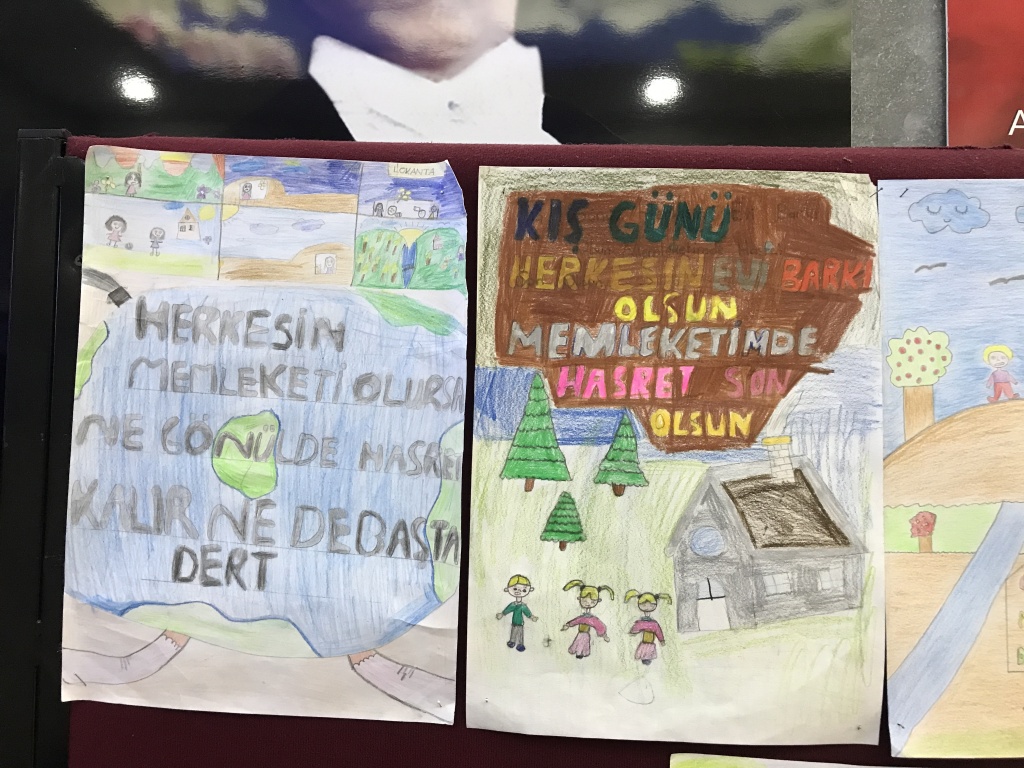 LOKANTA
HERKESİN
MEMLEKETİ OLURSA
NE GÖNÜLDE HASRET
KALIR NE DEBAŞTA
DERT
KIŞ GÜNÜ
HERKESİN EVİ BARKI
OLSUN
MEMLEKETİMDE
HASRET SON
OLSUN
A